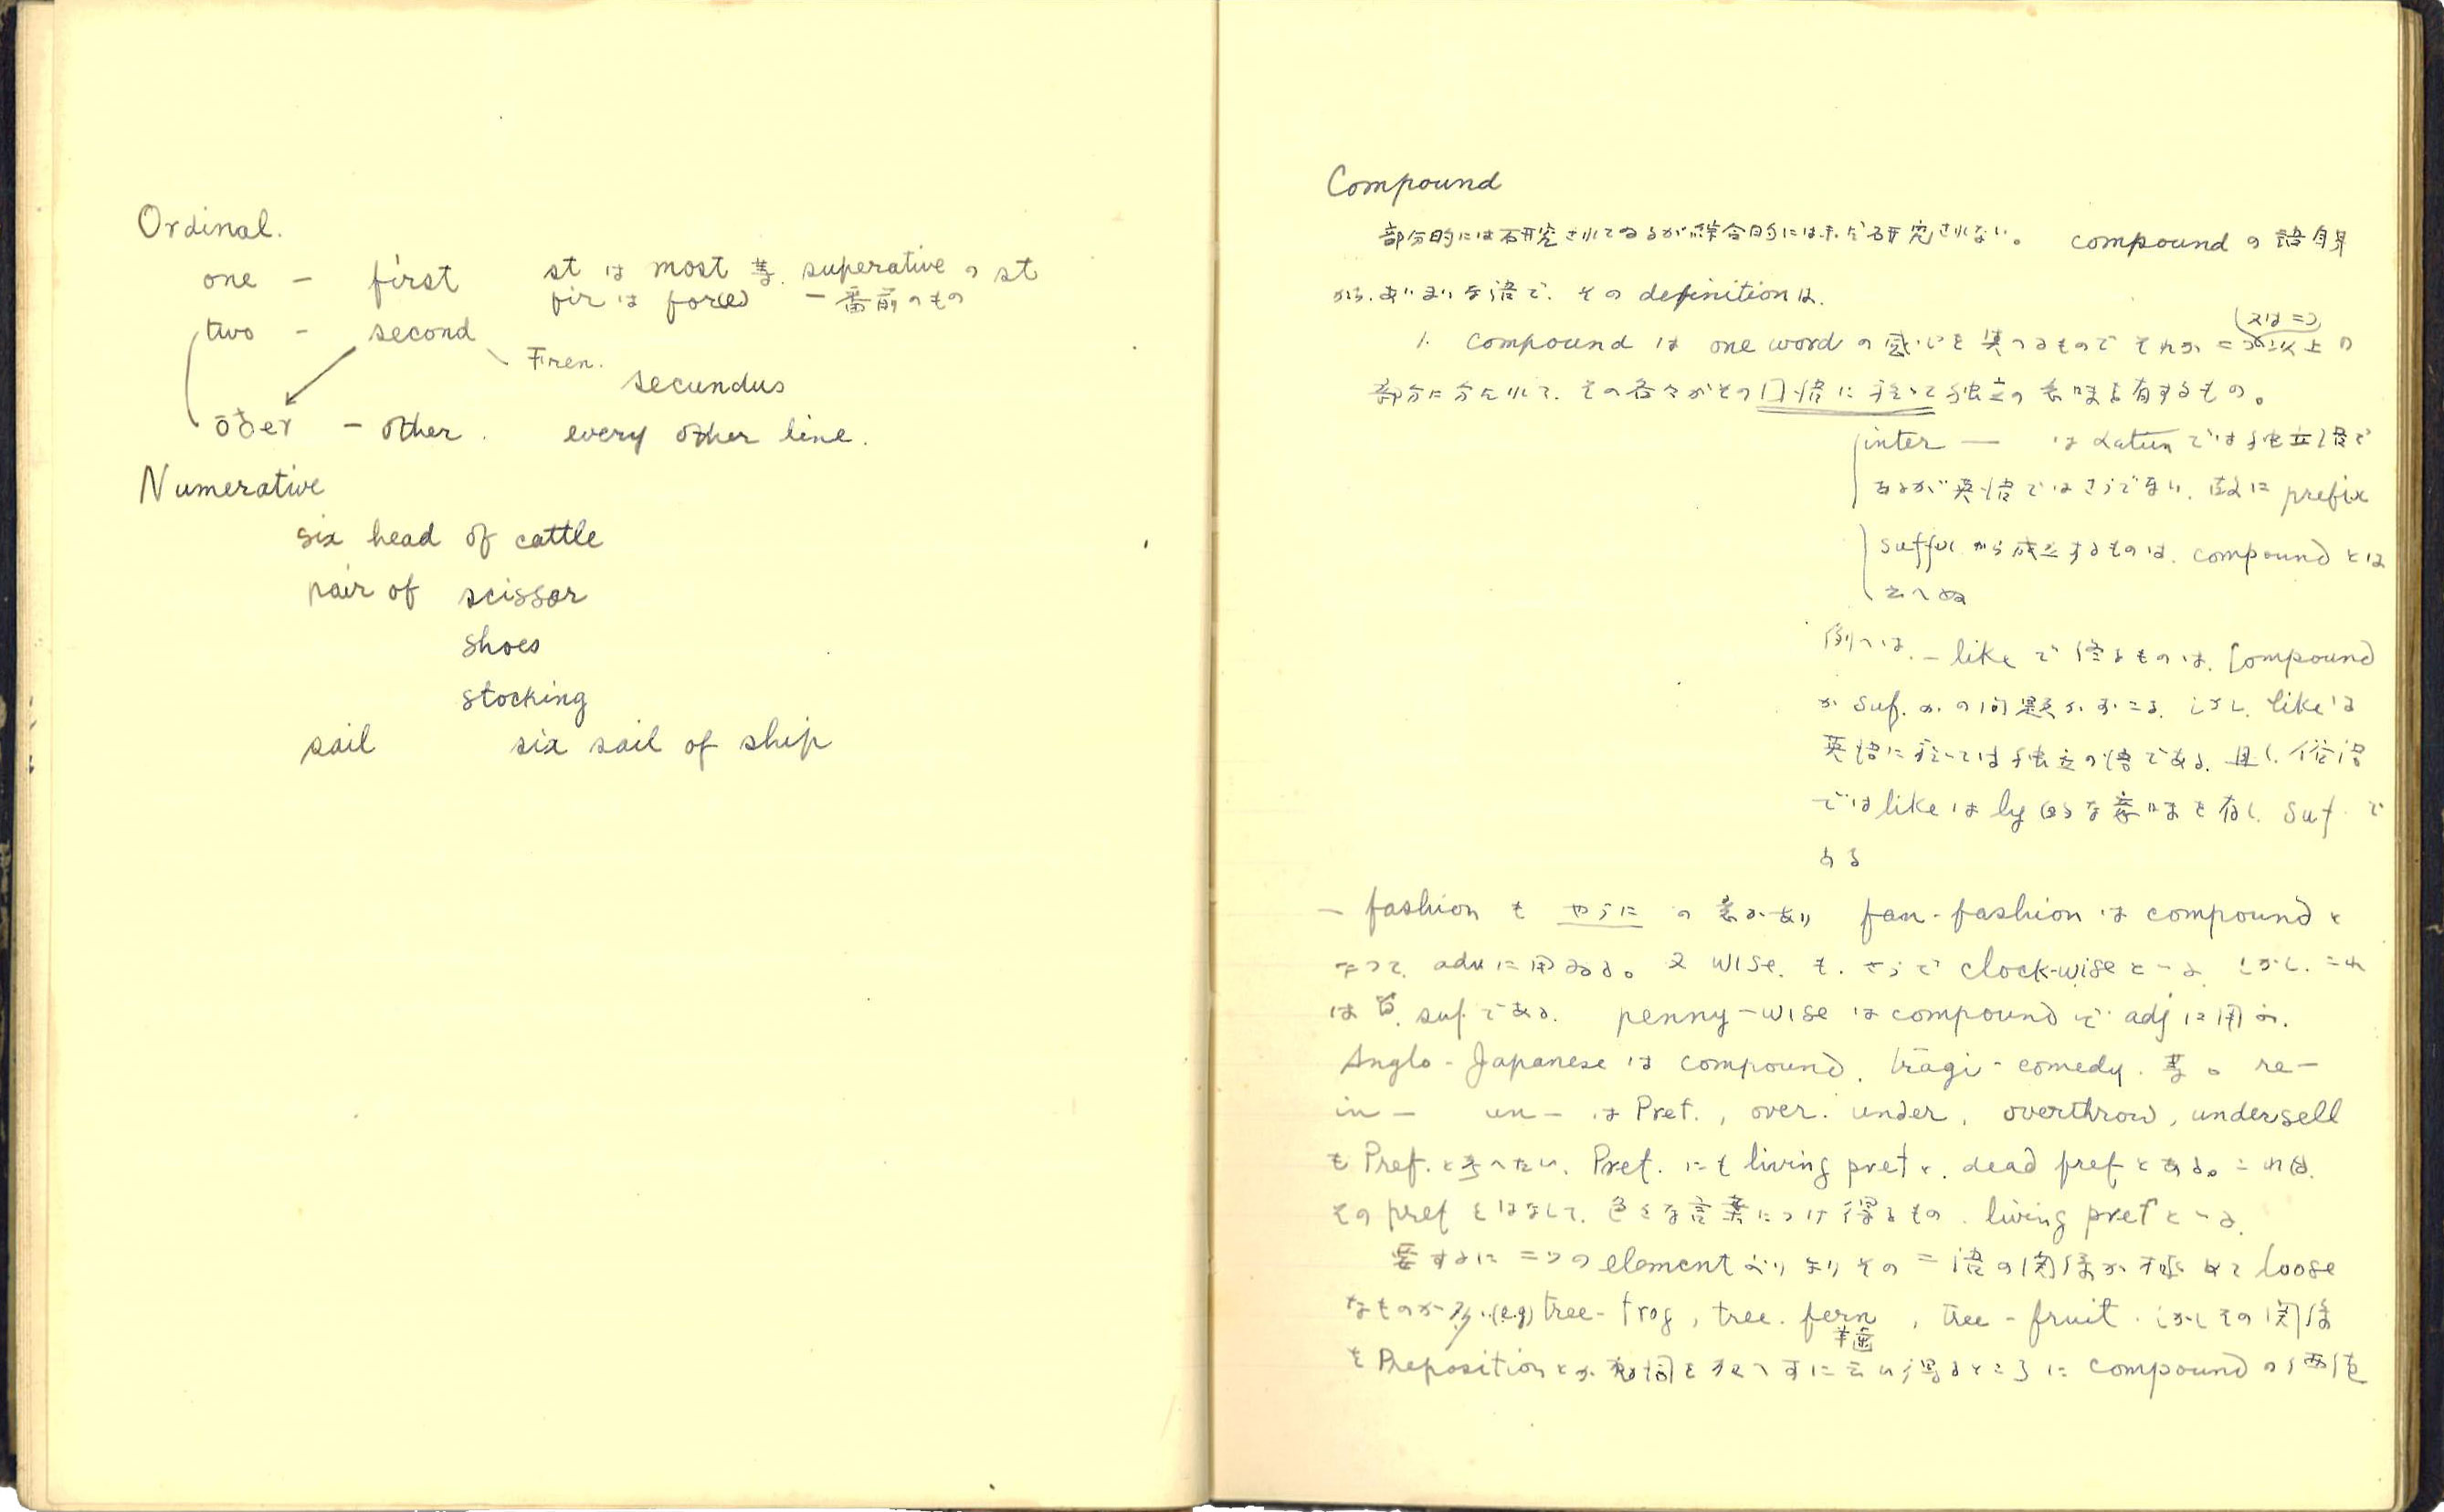 Ordinal.
one — first st は most 等 superative の st
fir は fore 一番前のもの
two - second
Fren.
secundus
ōðer - other. every other line.
Numerative
six head of cattle
pair of scissor
shoes
stocking
sail six sail of ship
Compound
部分的には研究されてゐるが綜合的にはまだ研究されない。 compound の語自身
が、あいまいな語で、その definition は、
(又は二つ)
1. compound は one word の感じを与へるものでそれが二つ以上の
部分に分たれて、その各々がその国語に於いて独立の意味を有するもの。
inter — は Latin では独立語で
あるが英語ではさうでない、故に prefix
suffix から成立するものは、compound とは
云へぬ
例へば、— like で終るものは、Compound
か Suf. かの問題がおこる、しかし、like は
英語に於いては独立の語である、且し、俗語
では like は ly 的な意味を有し Suf. で
ある
— fashion も やうに の意があり fan-fashion は compound と
なつて、adv に用ゐる。又 wise. も、さうで clock-wise といふ、しかし、これ
は suf. である、 penny-wise は compound で adj に用ふ、
Anglo-Japanese は compound, tragi-comedy. 等。 re—
in — un — は Pref., over. under, overthrow, undersell
も Pref. と考へたい、Pref. にも living pref と、dead pref とある。これは、
その pref をはなして、色々な言葉につけ得るもの、living pref といふ、
要するに二つの element よりなりその二語の関係が極めて loose
なものが多い(e.g) tree-frog, tree. fern, tree-fruit. しかしその関係
羊歯
を Preposition とか 動詞を加へずに云ひ得るところに compound の価値